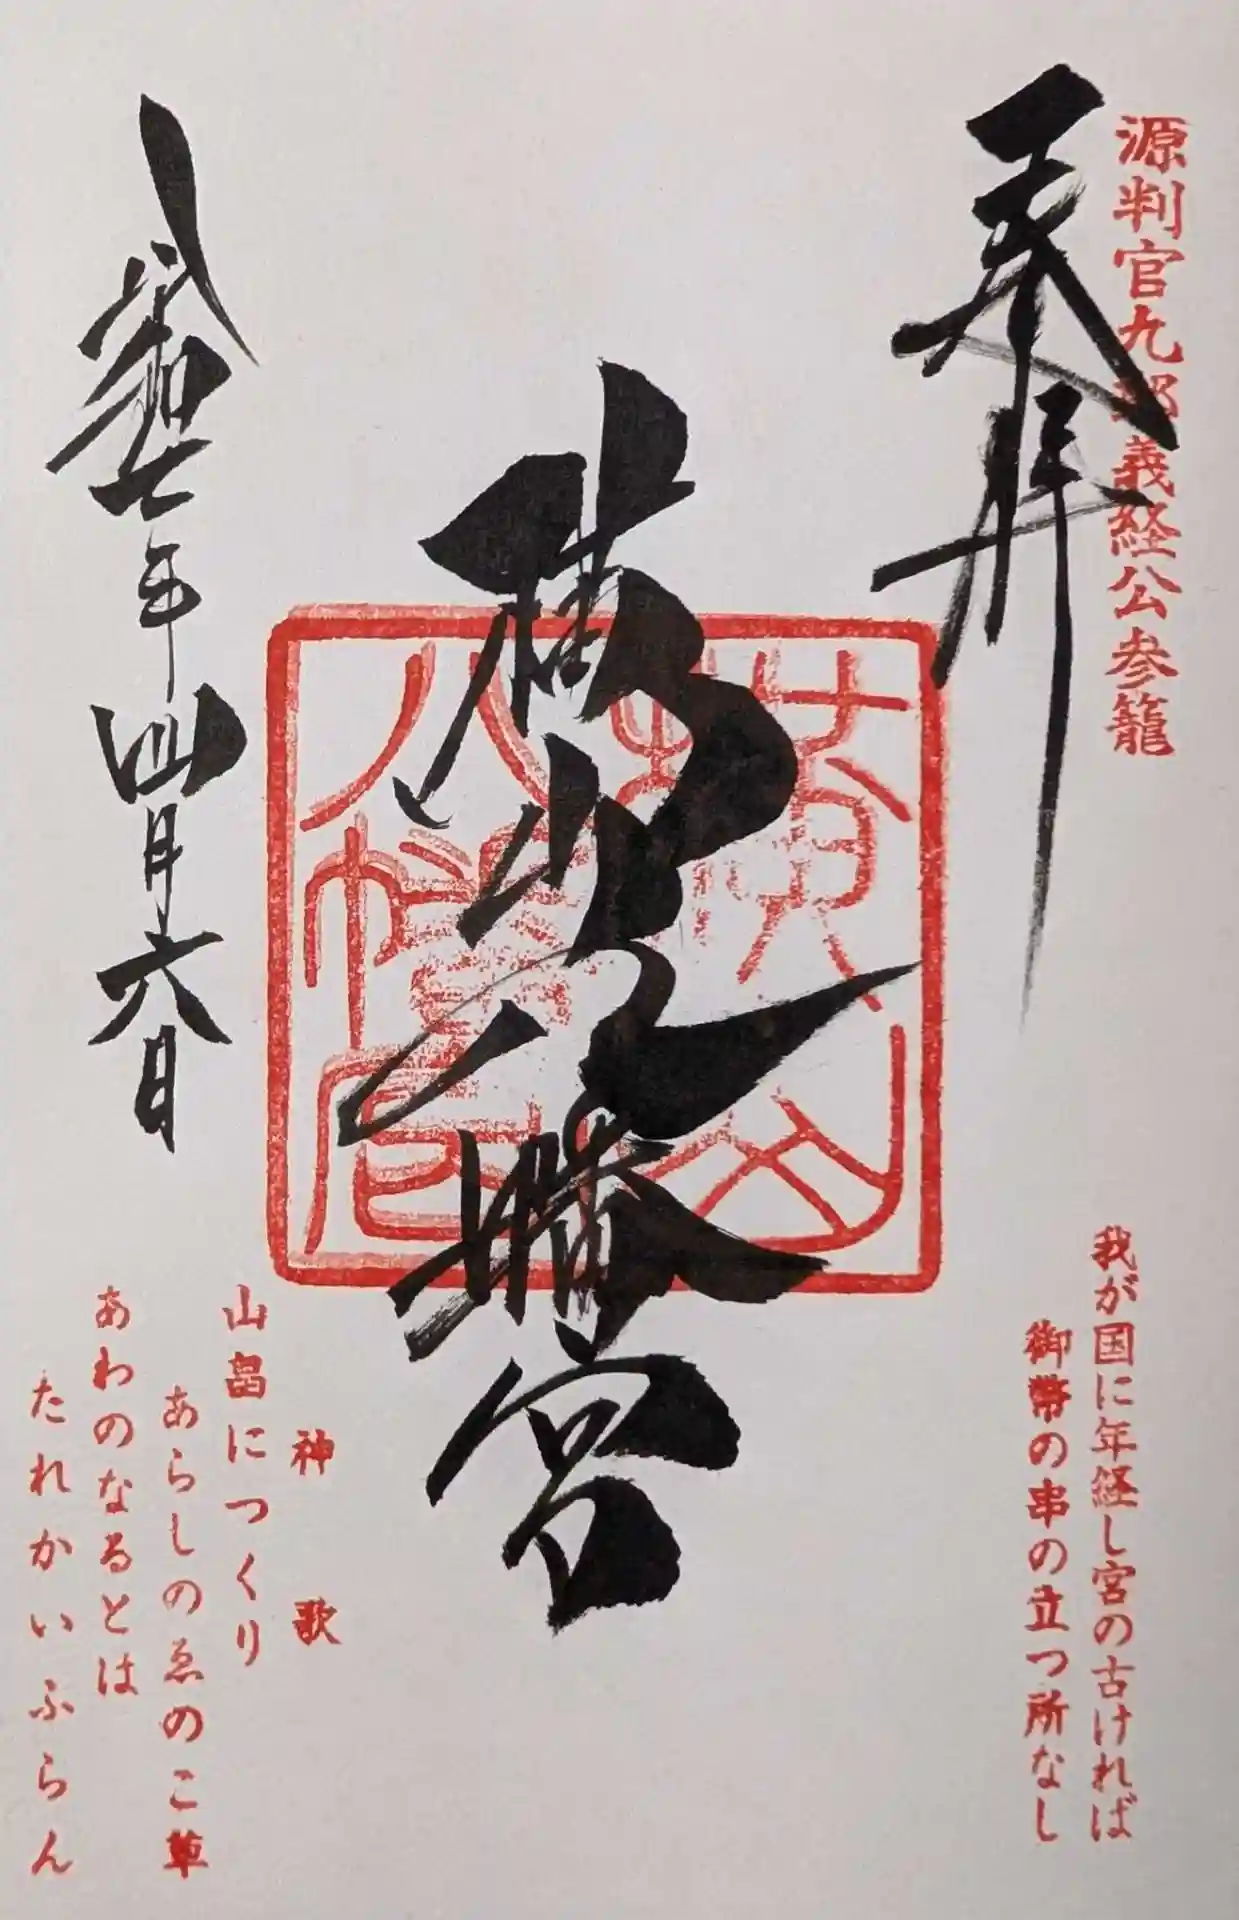 源判官九郎義経公参籠
奉拝
我が国に年経し宮の古ければ
御幣の串の立つ所なし
横山八幡宮
横山
八幡宮
神歌
山畠につくり
あらしのゑのこ草
あわのなるとは
たれかいふらん
令和七年四月六日